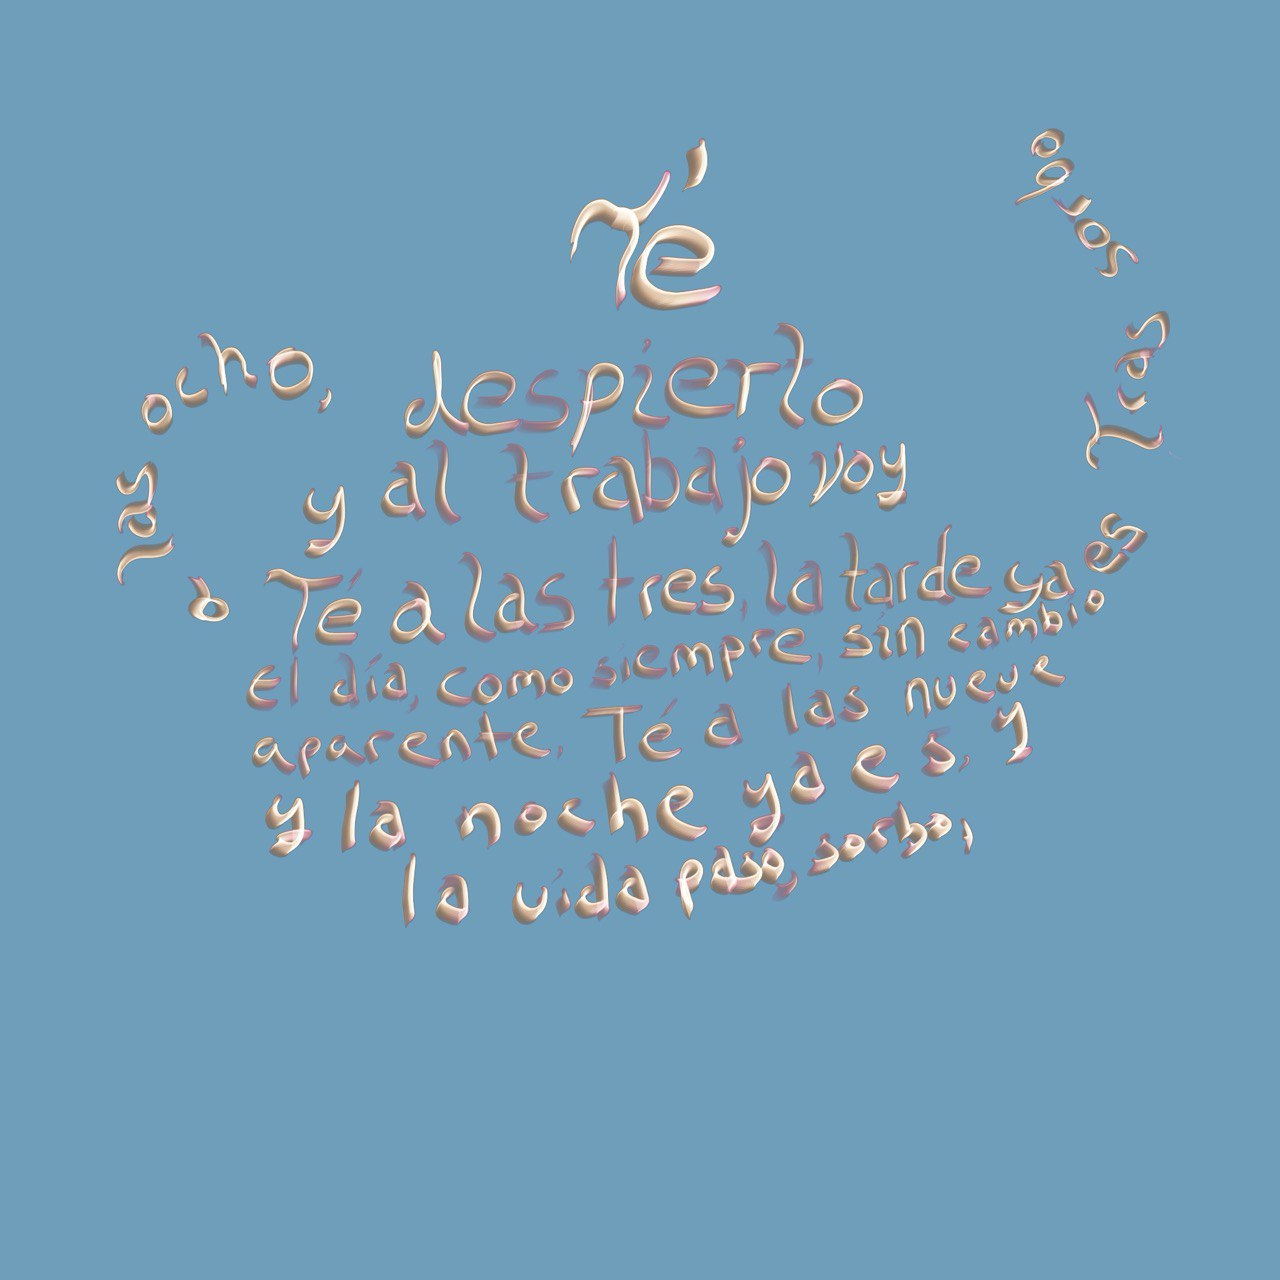 Té
a las ocho,
despierto
y al trabajo voy
Té a las tres, la tarde ya es
el día, como siempre, sin cambio
aparente. Té a las nueve
y la noche ya es, y
la vida paso, sorbo,
Tras sorbo